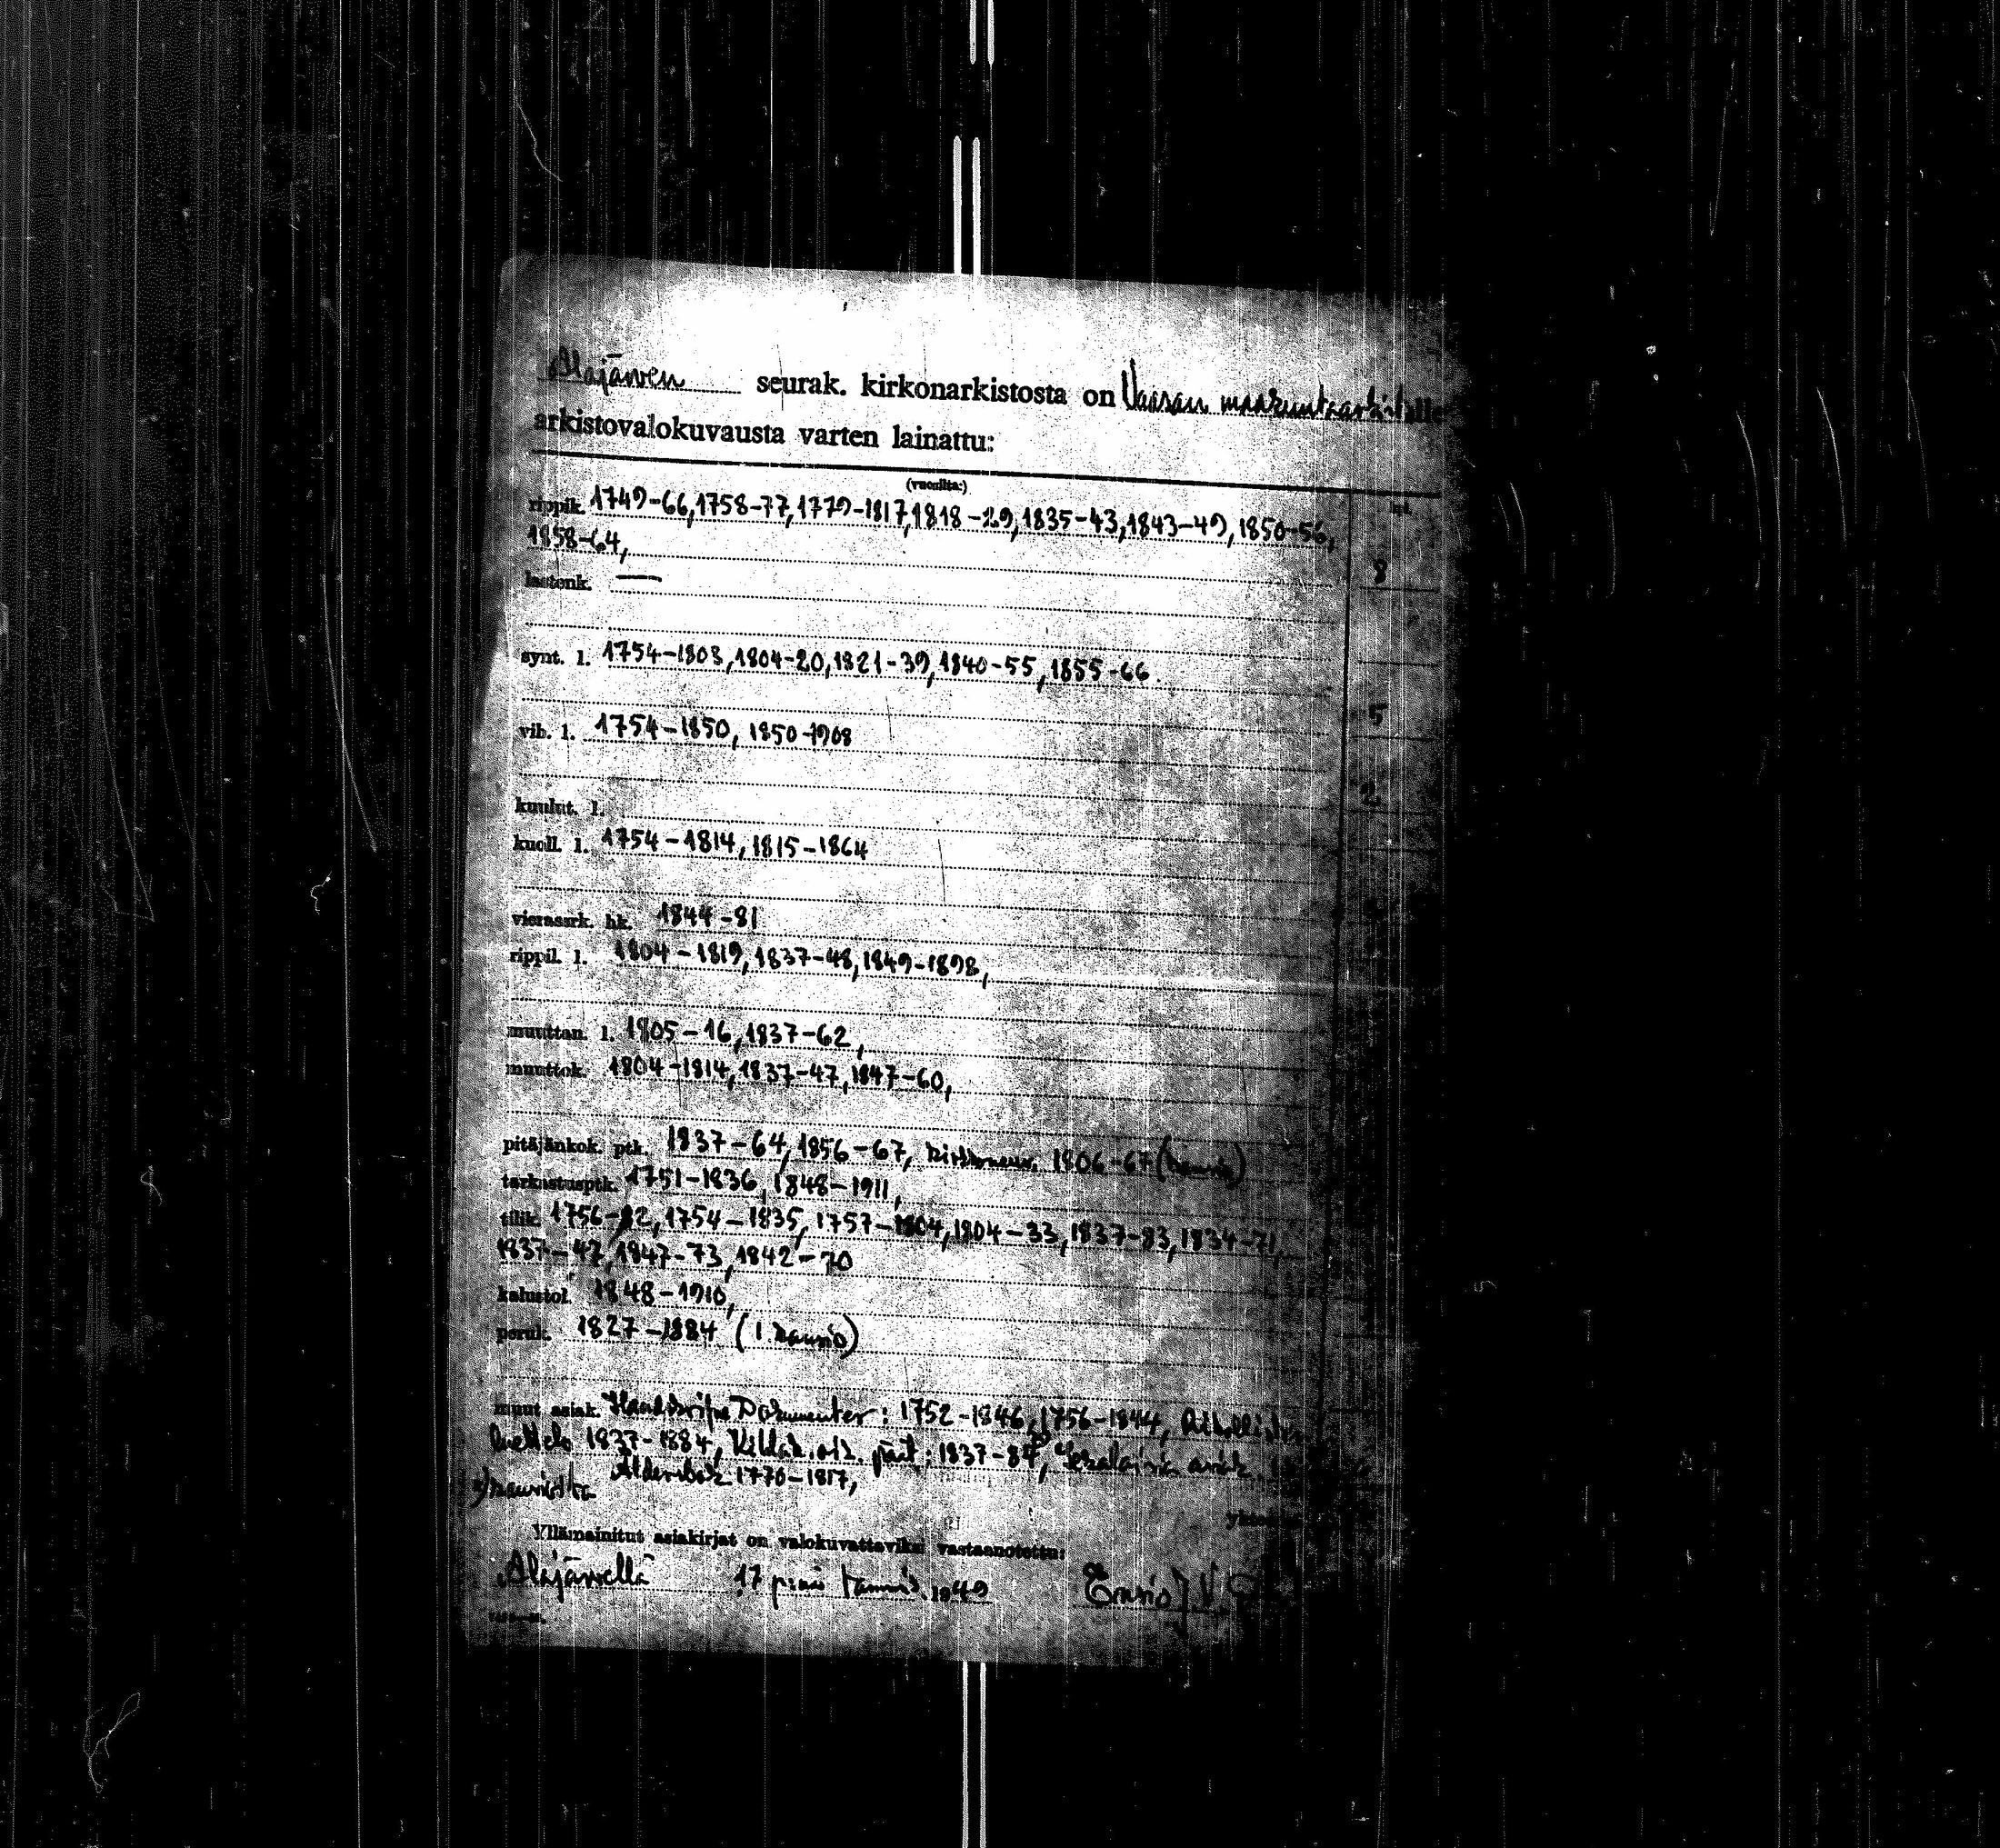 Alajärven seurak. kirkonarkistosta on Vaasan maakuntaarkistolle
arkistovalokuvausta varten lainattu:
(vuosilta:)
rippik. 1749-66, 1758-77, 1779-1817, 1818-29, 1835-43, 1843-49, 1850-56,
1858-64, 8
lastenk. —
synt. l. 1754-1803, 1804-20, 1821-39, 1840-55, 1855-66.
5
vih. l. 1754-1850, 1850-1908
2
kuulut. l.
kuoll. l. 1754-1814, 1815-1864
vierassrk. hk. 1844-81
rippil. l. 1804-1819, 1837-48, 1849-1898,
muuttan. l. 1805-16, 1837-62,
muuttok. 1804-1814, 1837-47, 1847-60,
pitäjänkok. ptk. 1837-64, 1856-67, 1806-67
tarkastusptk. 1751-1836, 1848-1911,
tilik. 1756-82, 1754-1835, 1757-1804, 1804-33, 1837-83, 1834-71,
1837-47, 1847-73, 1842-70
kalustol. 1848-1910,
peruk. 1827-1884
muut asiak. Dokumenter: 1752-1846, 1756-1844,
luettelo 1837-1884, 1837-84, Sekalaisia asiak.
1770-1817,
Yllämainitut asiakirjat on valokuvattaviksi vastaanotettu:
Alajärvellä 17 p:nä tammik. 1949